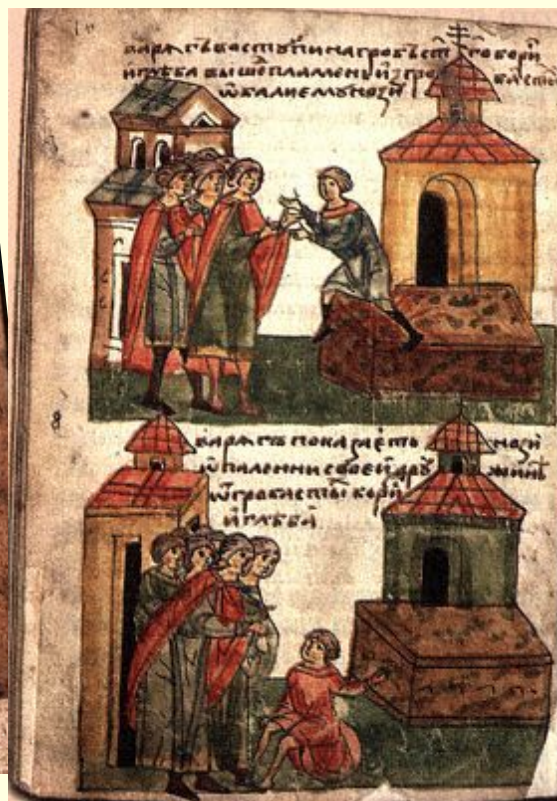 варѧгъ въстꙋпи на гробъ ст го бори
и глѣба выше пламень изгро ба сты
ѡбали емꙋ нози
варѧгъ показаеть нози
ѡпаленни своеи дрꙋ жинѣ
ѿ гроба сты бори
и глѣба